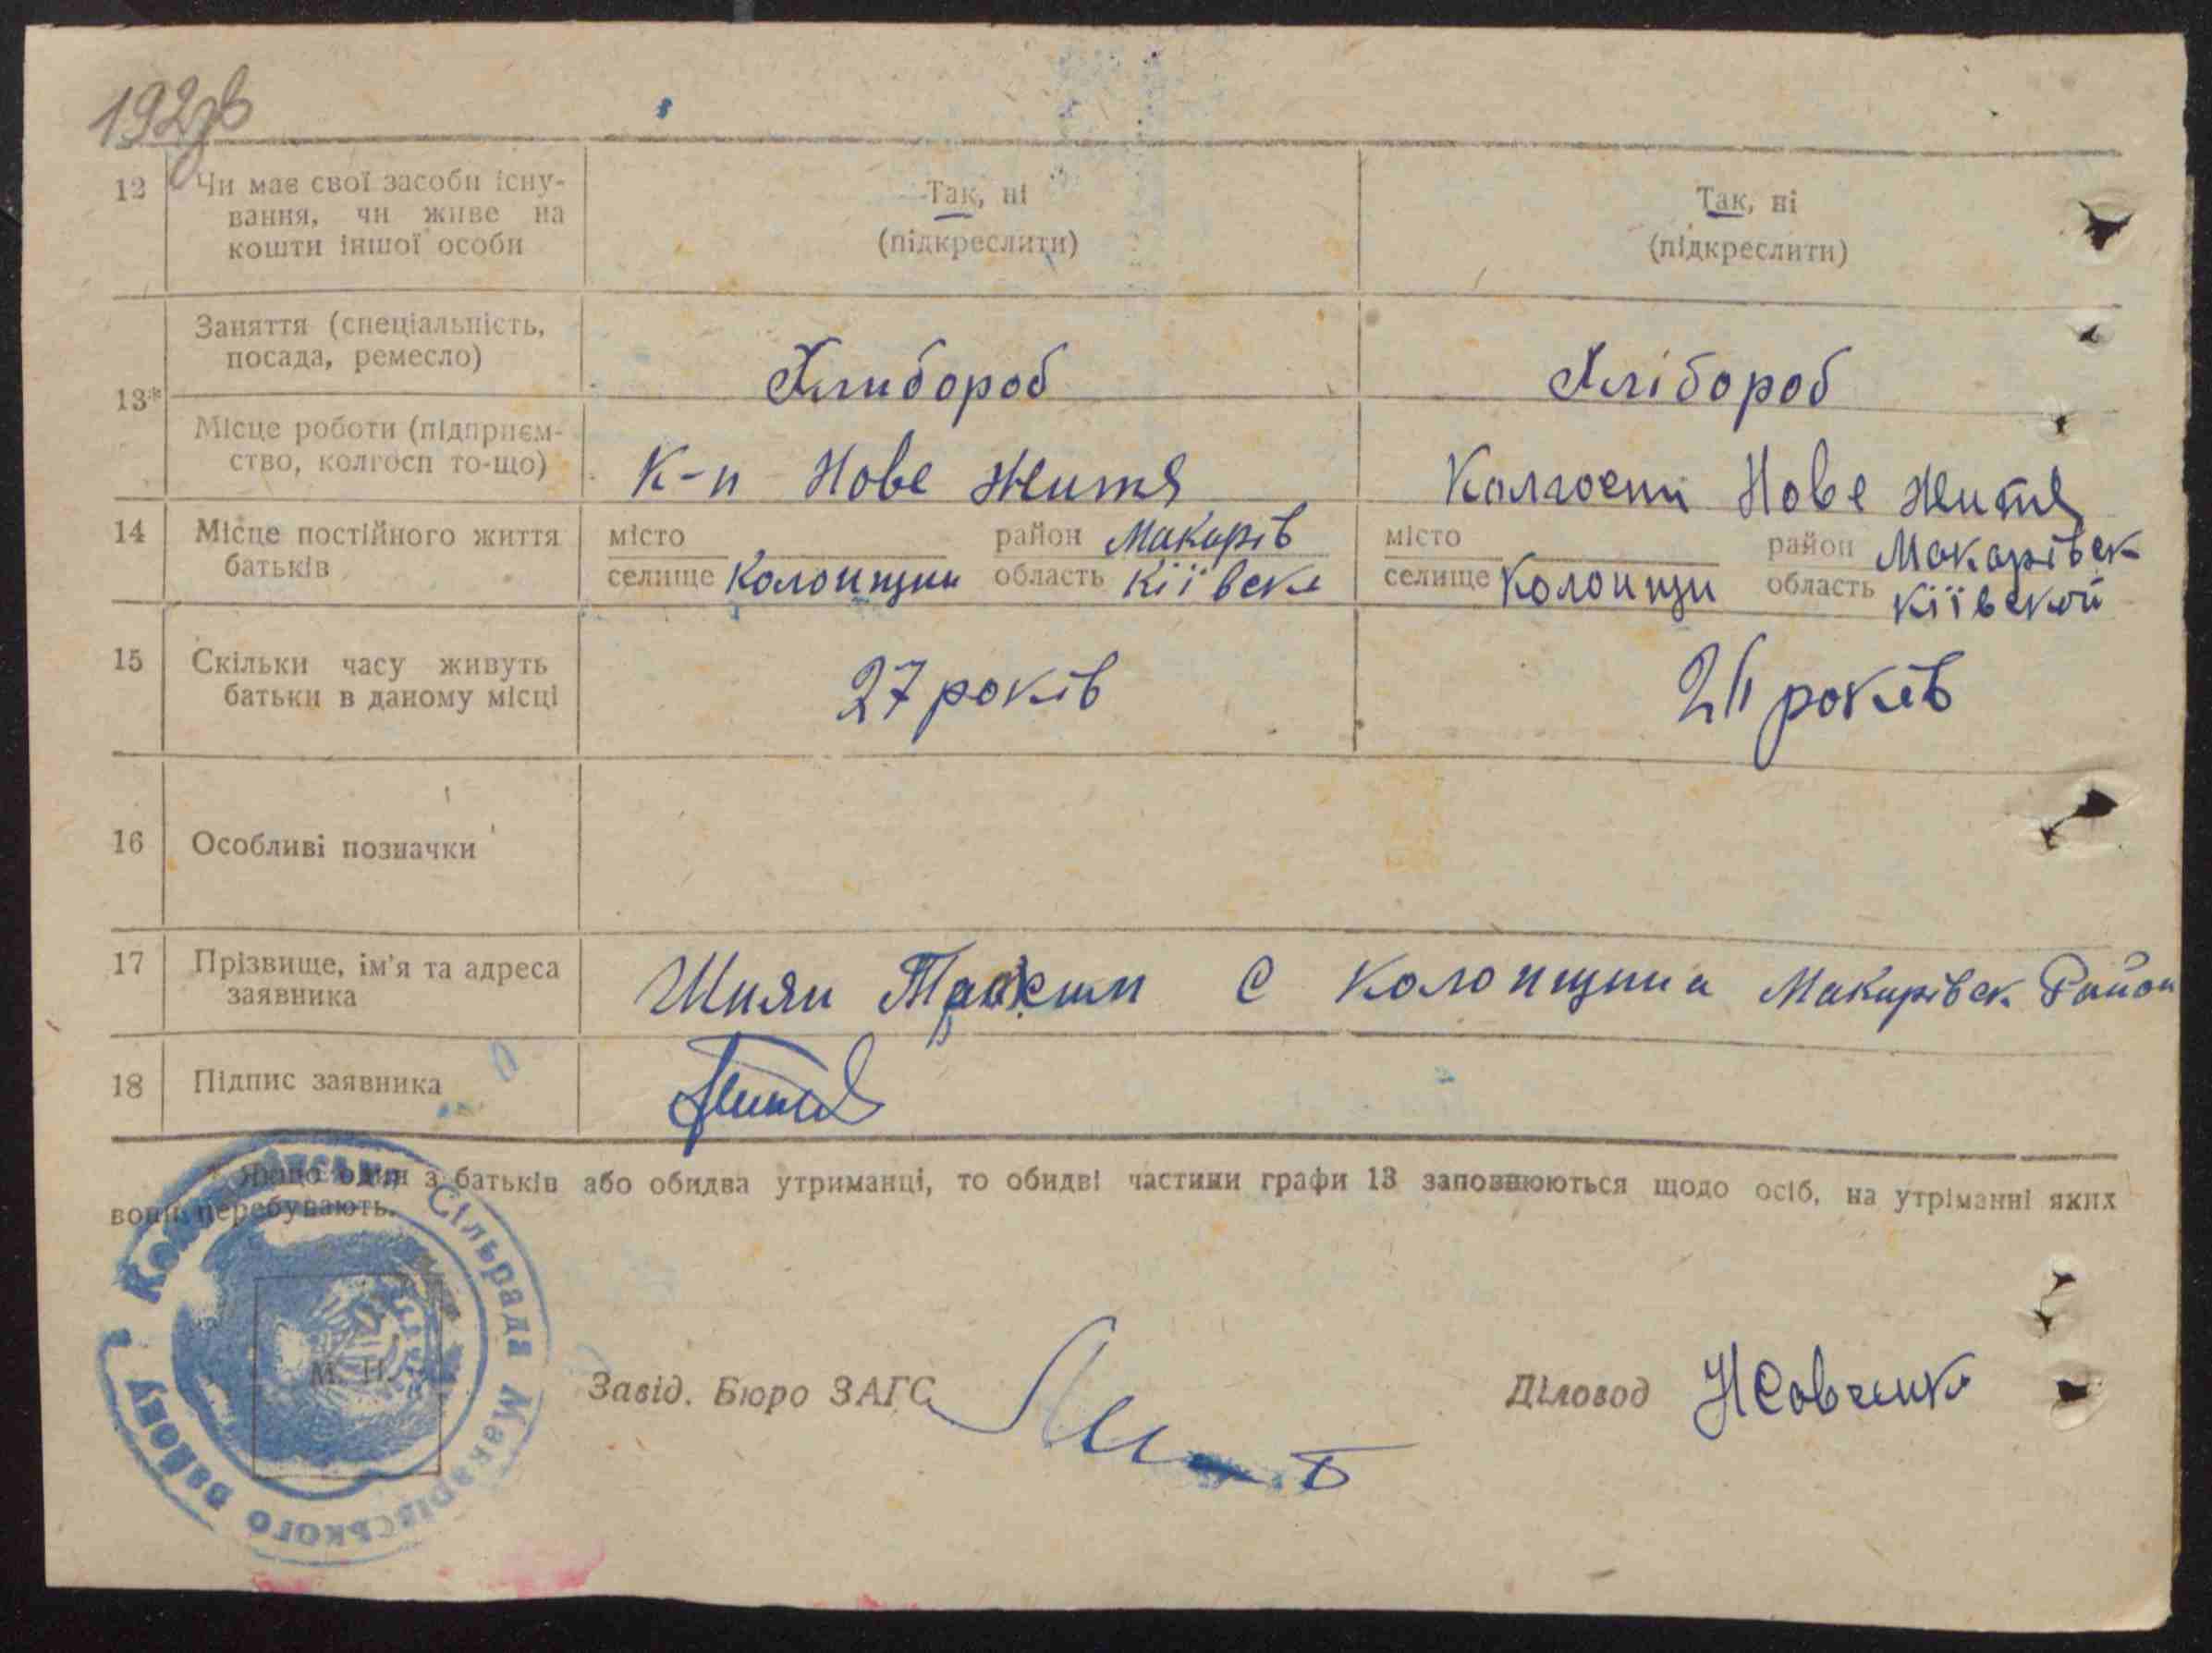 192зв
12 Чи має свої засоби існу-
вання, чи живе на
кошти іншої особи
Так, ні
(підкреслити)
Так, ні
(підкреслити)
13*
Заняття (спеціальність,
посада, ремесло)
Хлибороб
Хлібороб
Місце роботи (підприєм-
ство, колгосп то-що)
К-п Нове життя
Колгосп Нове життя
14 Місце постійного життя
батьків
місто
селище Колонщин
район Макарів
область Київськ
місто
селище Колонщи
район Макарівськ
область Київской
15 Скільки часу живуть
батьки в даному місці
27 років
років
16 Особливі позначки
17 Прізвище, ім'я та адреса
заявника
Шиян С Колонщина Макарівск Район
18 Підпис заявника
* Якщо один з батьків або обидва утриманці, то обидві частини графи 13 заповнюються щодо осіб, на утріманні яких
вони перебувають.
Сільрада Макарівського району
М. П.
Завід. Бюро ЗАГС
Діловод Н Савченко